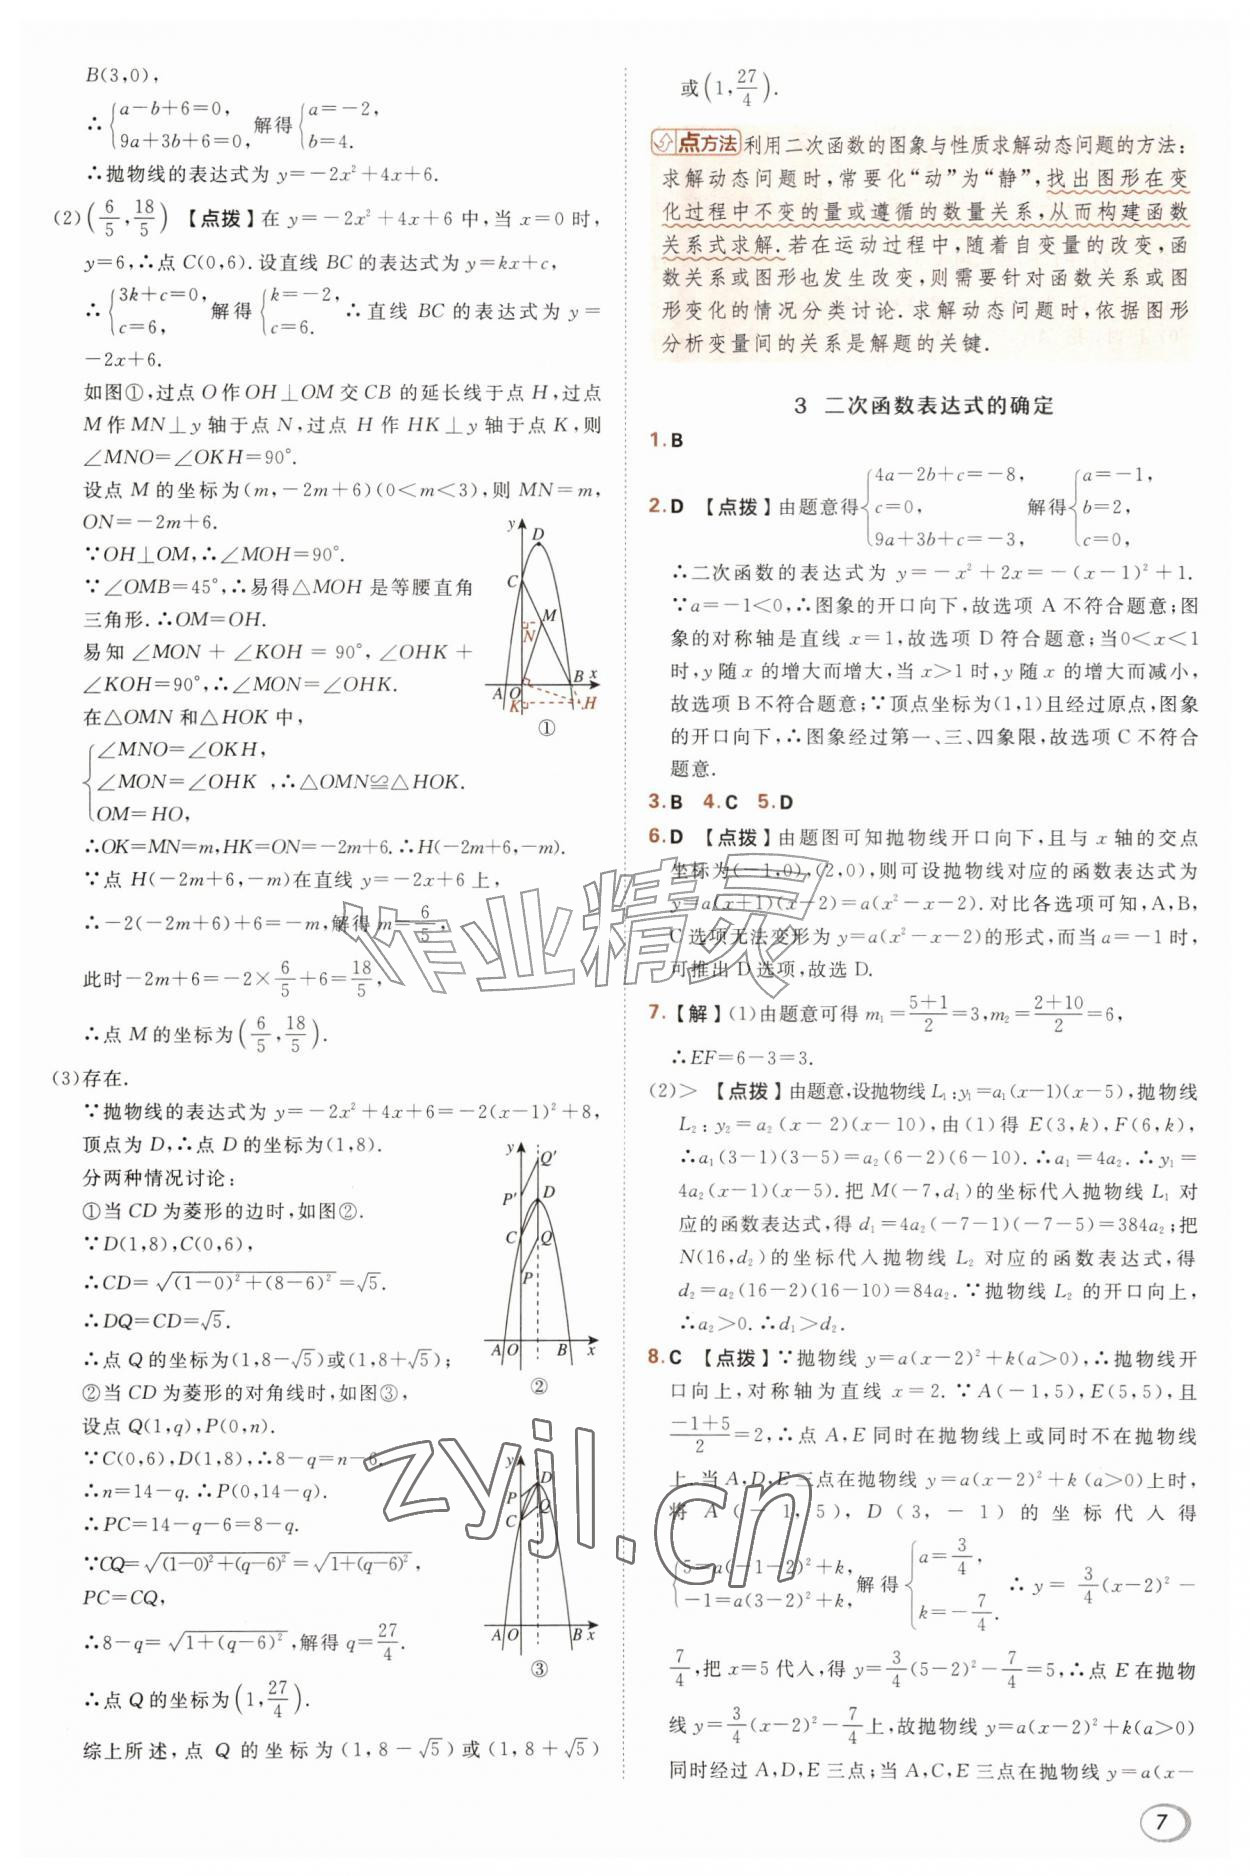 B(3,0),
∴{a−b+6=0, 9a+3b+6=0, 解得{a=−2, b=4.
∴抛物线的表达式为 y=−2x²+4x+6.
(2)(6/5,18/5) 【点拨】在 y=−2x²+4x+6 中,当 x=0 时,
y=6,∴点 C(0,6).设直线 BC 的表达式为 y=kx+c,
∴{3k+c=0, c=6, 解得{k=−2, c=6. ∴直线 BC 的表达式为 y=
−2x+6.
如图①,过点 O 作 OH⊥OM 交 CB 的延长线于点 H,过点
M 作 MN⊥y 轴于点 N,过点 H 作 HK⊥y 轴于点 K,则
∠MNO=∠OKH=90°.
设点 M 的坐标为(m,−2m+6)(0<m<3),则 MN=m,
ON=−2m+6.
∵OH⊥OM,∴∠MOH=90°.
∵∠OMB=45°,∴易得△MOH 是等腰直角
三角形.∴OM=OH.
易知∠MON+∠KOH=90°,∠OHK+
∠KOH=90°,∴∠MON=∠OHK.
在△OMN 和△HOK 中,
{∠MNO=∠OKH,
∠MON=∠OHK ,∴△OMN≌△HOK.
OM=HO,
y D C M N A O B x K H
①
∴OK=MN=m,HK=ON=−2m+6.∴H(−2m+6,−m).
∵点 H(−2m+6,−m)在直线 y=−2x+6 上,
∴−2(−2m+6)+6=−m,解得 m=6/5,
此时−2m+6=−2×6/5+6=18/5,
∴点 M 的坐标为(6/5,18/5).
(3)存在.
∵抛物线的表达式为 y=−2x²+4x+6=−2(x−1)²+8,
顶点为 D,∴点 D 的坐标为(1,8).
分两种情况讨论:
①当 CD 为菱形的边时,如图②.
∵D(1,8),C(0,6),
∴CD=√((1−0)²+(8−6)²)=√5.
∴DQ=CD=√5.
∴点 Q 的坐标为(1,8−√5)或(1,8+√5);
y Q′ P′ D C Q P A O B x
②
②当 CD 为菱形的对角线时,如图③,
设点 Q(1,q),P(0,n).
∵C(0,6),D(1,8),∴8−q=n−6.
∴n=14−q.∴P(0,14−q).
∴PC=14−q−6=8−q.
∵CQ=√((1−0)²+(q−6)²)=√(1+(q−6)²),
PC=CQ,
∴8−q=√(1+(q−6)²),解得 q=27/4.
y D P Q C A O B x
③
∴点 Q 的坐标为(1,27/4).
综上所述,点 Q 的坐标为(1,8−√5)或(1,8+√5)
或(1,27/4).
点方法 利用二次函数的图象与性质求解动态问题的方法:
求解动态问题时,常要化“动”为“静”,找出图形在变
化过程中不变的量或遵循的数量关系,从而构建函数
关系式求解.若在运动过程中,随着自变量的改变,函
数关系或图形也发生改变,则需要针对函数关系或图
形变化的情况分类讨论.求解动态问题时,依据图形
分析变量间的关系是解题的关键.
3 二次函数表达式的确定
1.B
2.D 【点拨】由题意得{4a−2b+c=−8, c=0, 9a+3b+c=−3, 解得{a=−1, b=2, c=0,
∴二次函数的表达式为 y=−x²+2x=−(x−1)²+1.
∵a=−1<0,∴图象的开口向下,故选项 A 不符合题意;图
象的对称轴是直线 x=1,故选项 D 符合题意;当0<x<1
时,y 随 x 的增大而增大,当 x>1 时,y 随 x 的增大而减小,
故选项 B 不符合题意;∵顶点坐标为(1,1)且经过原点,图象
的开口向下,∴图象经过第一、三、四象限,故选项 C 不符合
题意.
3.B 4.C 5.D
6.D 【点拨】由题图可知抛物线开口向下,且与 x 轴的交点
坐标为(−1,0),(2,0),则可设抛物线对应的函数表达式为
y=a(x+1)(x−2)=a(x²−x−2).对比各选项可知,A,B,
C 选项无法变形为 y=a(x²−x−2)的形式,而当 a=−1 时,
可推出 D 选项,故选 D.
7.【解】(1)由题意可得 m₁=(5+1)/2=3,m₂=(2+10)/2=6,
∴EF=6−3=3.
(2)> 【点拨】由题意,设抛物线 L₁:y₁=a₁(x−1)(x−5),抛物线
L₂:y₂=a₂(x−2)(x−10),由(1)得 E(3,k),F(6,k),
∴a₁(3−1)(3−5)=a₂(6−2)(6−10).∴a₁=4a₂.∴y₁=
4a₂(x−1)(x−5).把 M(−7,d₁)的坐标代入抛物线 L₁ 对
应的函数表达式,得 d₁=4a₂(−7−1)(−7−5)=384a₂;把
N(16,d₂)的坐标代入抛物线 L₂ 对应的函数表达式,得
d₂=a₂(16−2)(16−10)=84a₂.∵抛物线 L₂ 的开口向上,
∴a₂>0.∴d₁>d₂.
8.C 【点拨】∵抛物线 y=a(x−2)²+k(a>0),∴抛物线开
口向上,对称轴为直线 x=2.∵A(−1,5),E(5,5),且
(−1+5)/2=2,∴点 A,E 同时在抛物线上或同时不在抛物线
上.当 A,D,E 三点在抛物线 y=a(x−2)²+k(a>0)上时,
将 A(−1,5),D(3,−1)的坐标代入得
{5=a(−1−2)²+k, −1=a(3−2)²+k, 解得{a=3/4, k=−7/4. ∴y=3/4(x−2)²−
7/4,把 x=5 代入,得 y=3/4(5−2)²−7/4=5,∴点 E 在抛物
线 y=3/4(x−2)²−7/4上,故抛物线 y=a(x−2)²+k(a>0)
同时经过 A,D,E 三点;当 A,C,E 三点在抛物线 y=a(x−
7
作业精灵
zyjl.cn